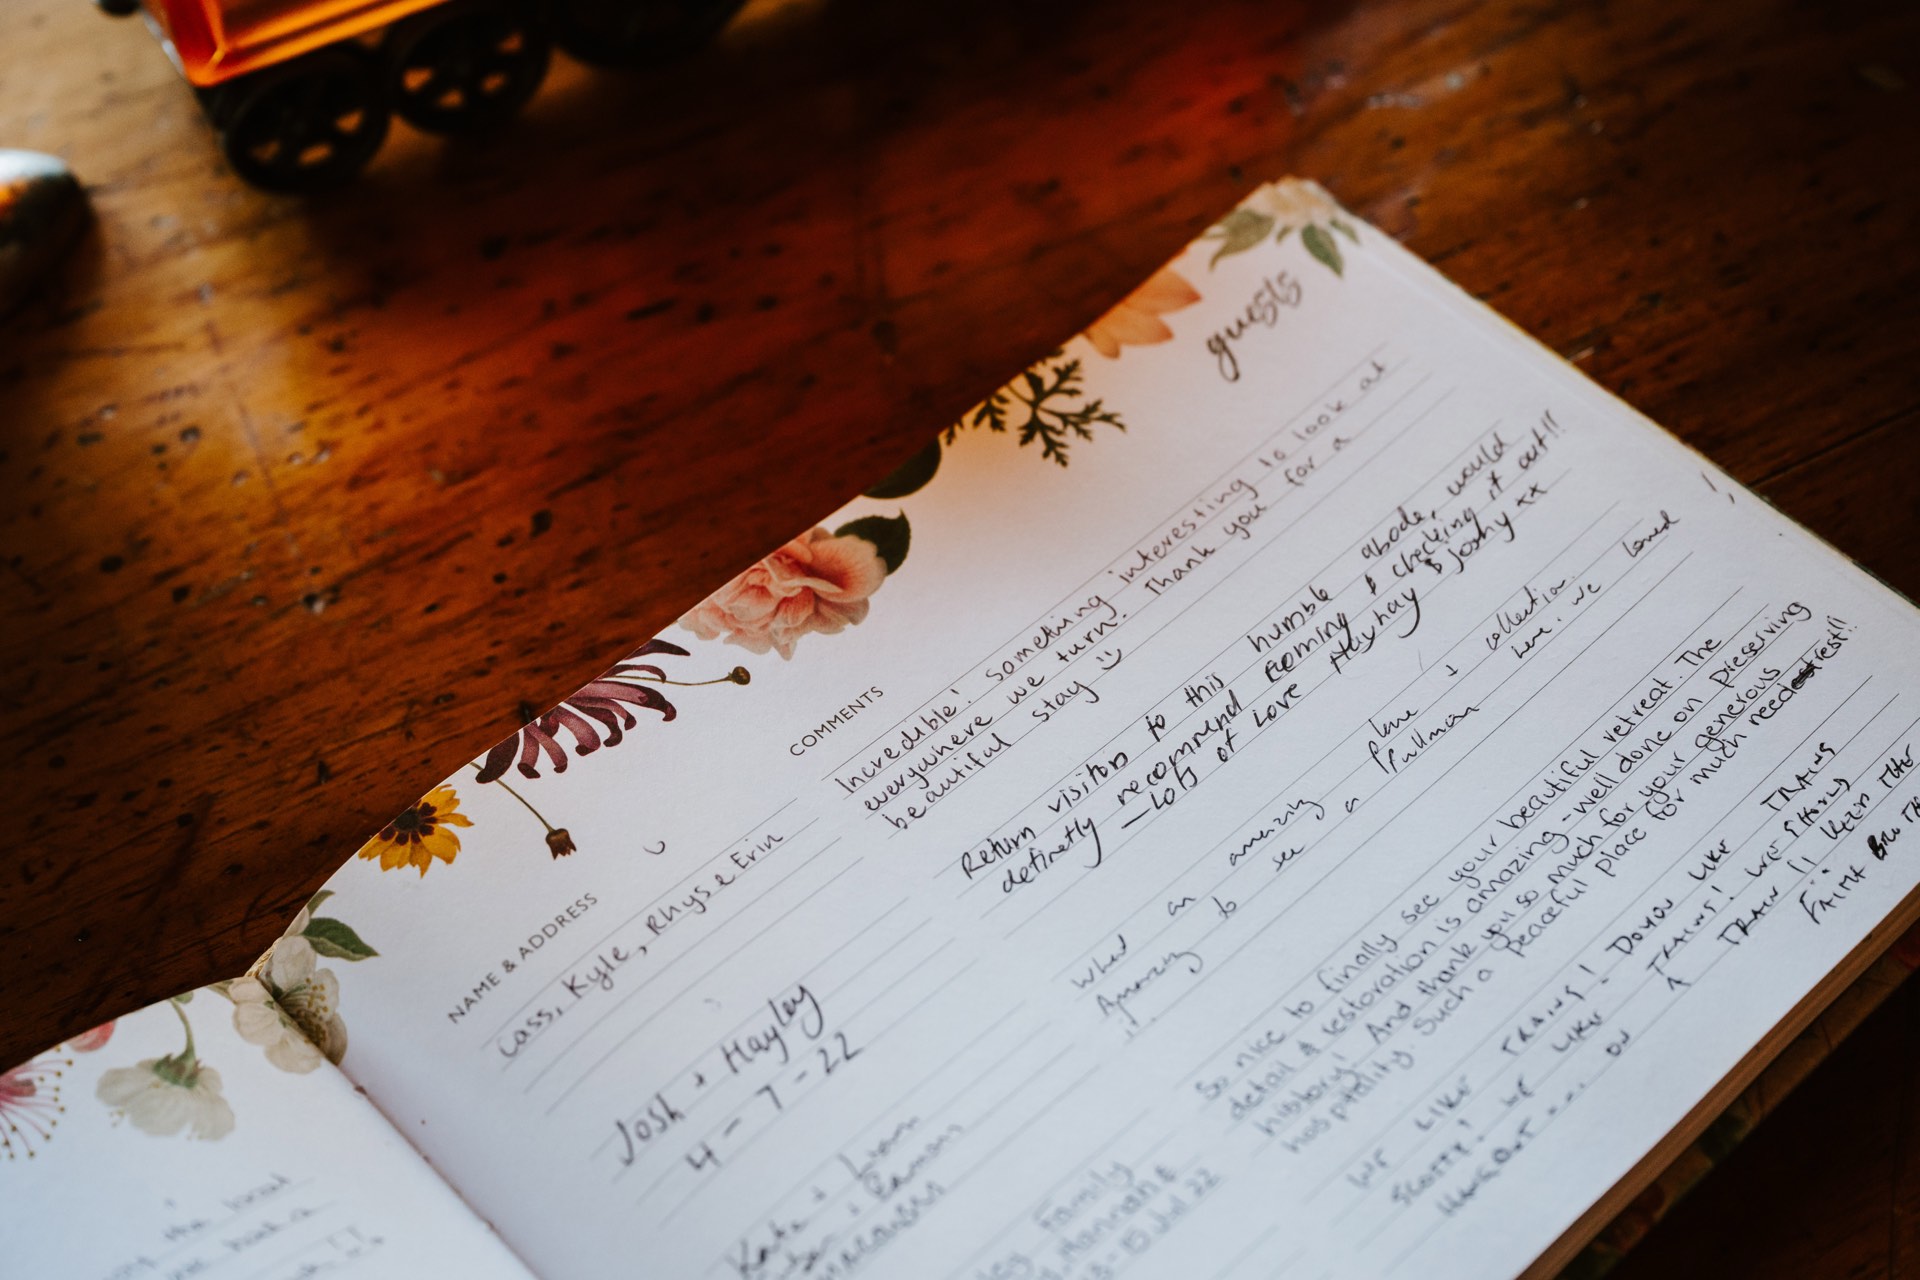 guests
NAME & ADDRESS
COMMENTS
Cass, Kyle, Rhys & Erin
Incredible! Something interesting to look at
everywhere we turn. Thank you for a
beautiful stay :)
Josh + Hayley
4-7-22
Return visitors to this humble abode, would
definetly recommend coming & checking it out!!
- Lots of Love Hayhay & Joshy xx
Kate + Liam
What an amazing place & collection.
Amazing to see a Pullman here. we loved
it. !!
Family
Hannah &
- 15 Jul 22
So nice to finally see your beautiful retreat. The
detail & restoration is amazing - well done on preserving
history! And thank you so much for your generous
hospitality. Such a peaceful place for much needed rest!!
WE LIKE TRAINS! DO YOU LIKE TRAINS
SCOTTY! WE LIKE TRAINS! WE
ON A TRAIN
the local